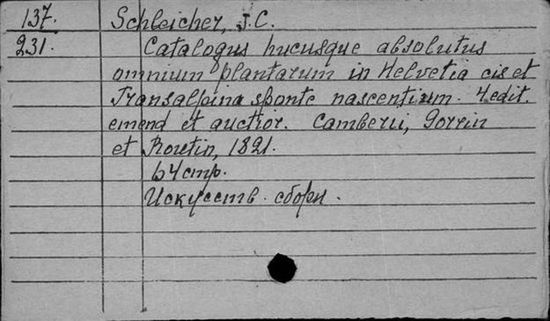 137. Schleicher, J.C.
231. Catalogus hucusque absolutus
omnium plantarum in Helvetia cis et
Transalpina sponte nascentium. 4 edit.
emend et auctior. Camberii, Gorrin
et Routin, 1821.
64 стр.
Искусств. сборн.